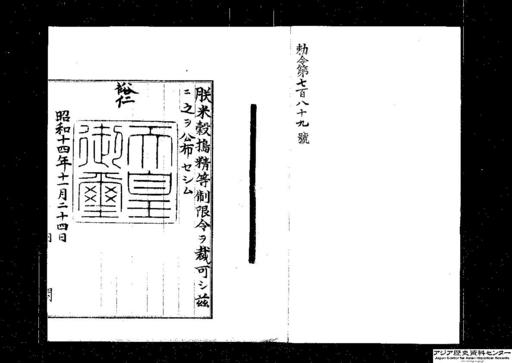 勅令第七百八十九號
朕米穀搗精等制限令ヲ裁可シ茲
ニ之ヲ公布セシム
裕仁
天皇
御璽
昭和十四年十一月二十四日
アジア歴史資料センター
Japan Center for Asian Historical Records